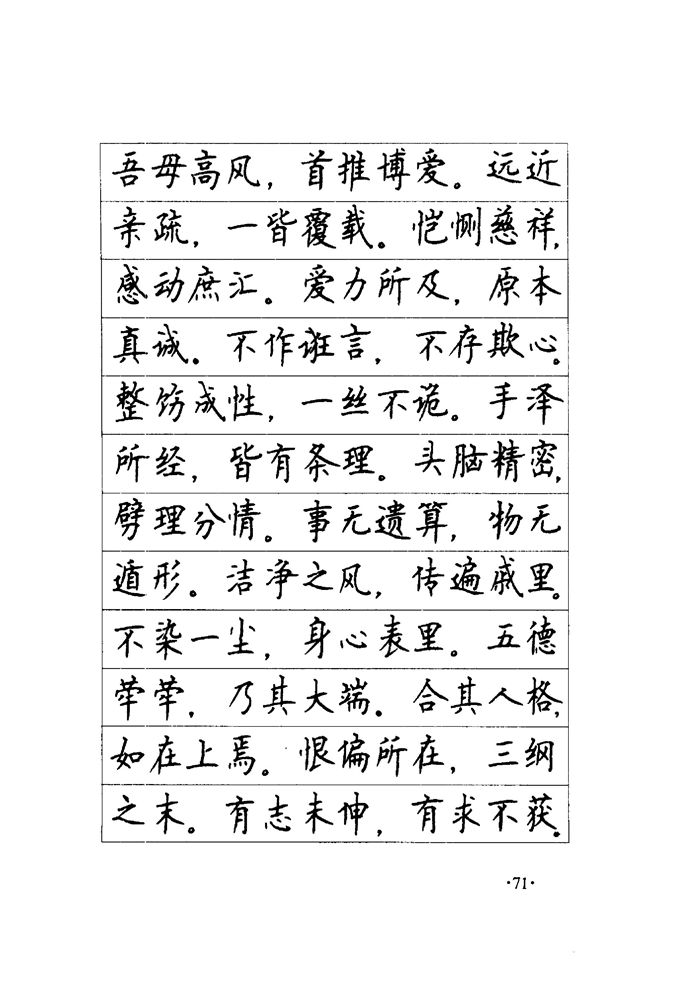 吾母高风，首推博爱。远近
亲疏，一皆覆载。恺恻慈祥，
感动庶汇。爱力所及，原本
真诚。不作诳言，不存欺心。
整饬成性，一丝不诡。手泽
所经，皆有条理。头脑精密，
劈理分情。事无遗算，物无
遁形。洁净之风，传遍戚里。
不染一尘，身心表里。五德
荦荦，乃其大端。合其人格，
如在上焉。恨偏所在，三纲
之末。有志未伸，有求不获。
·71·